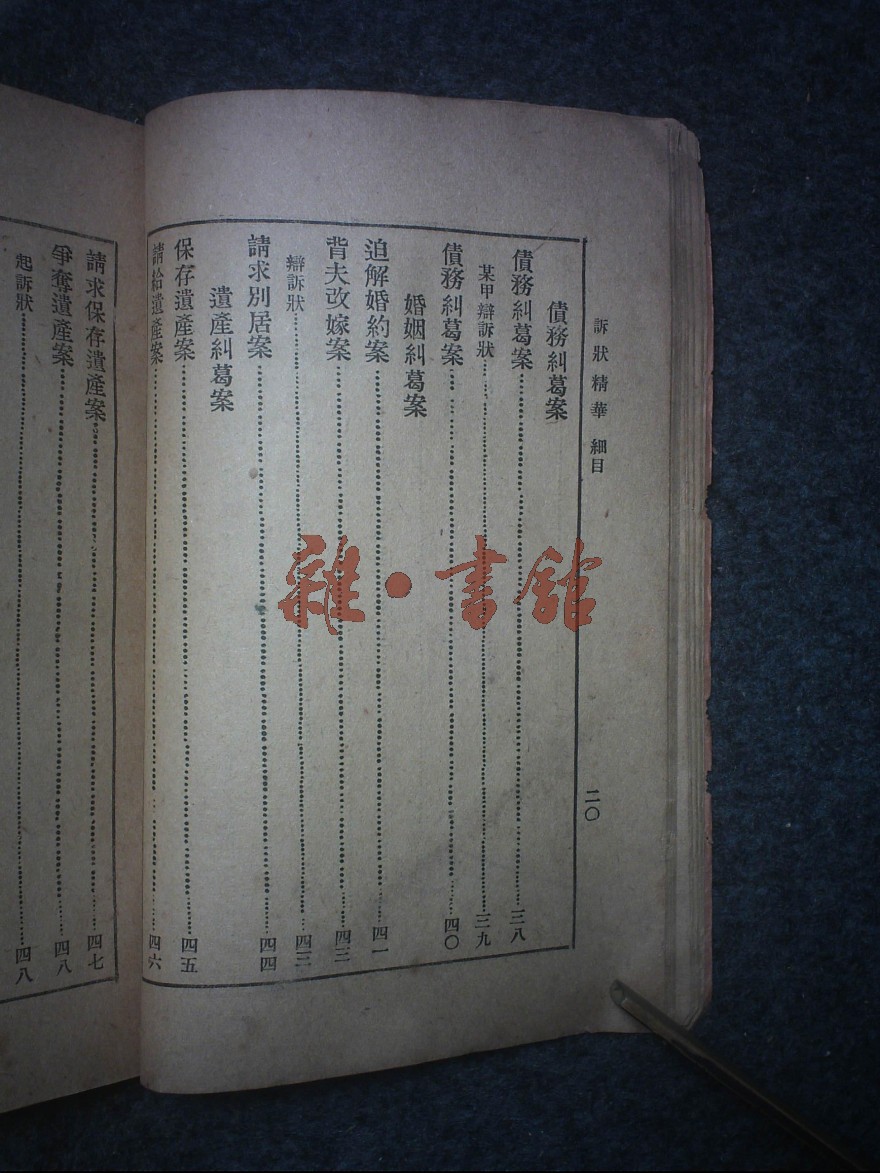 訴狀精華 細目 二〇
債務糾葛案
債務糾葛案 三八
某甲辯訴狀 三九
債務糾葛案 四〇
婚姻糾葛案
迫解婚約案 四一
背夫改嫁案 四三
辯訴狀 四三
請求別居案 四四
遺產糾葛案
保存遺產案 四五
請給遺產案 四六
請求保存遺產案 四七
爭奪遺產案 四八
起訴狀 四八
雜·書館